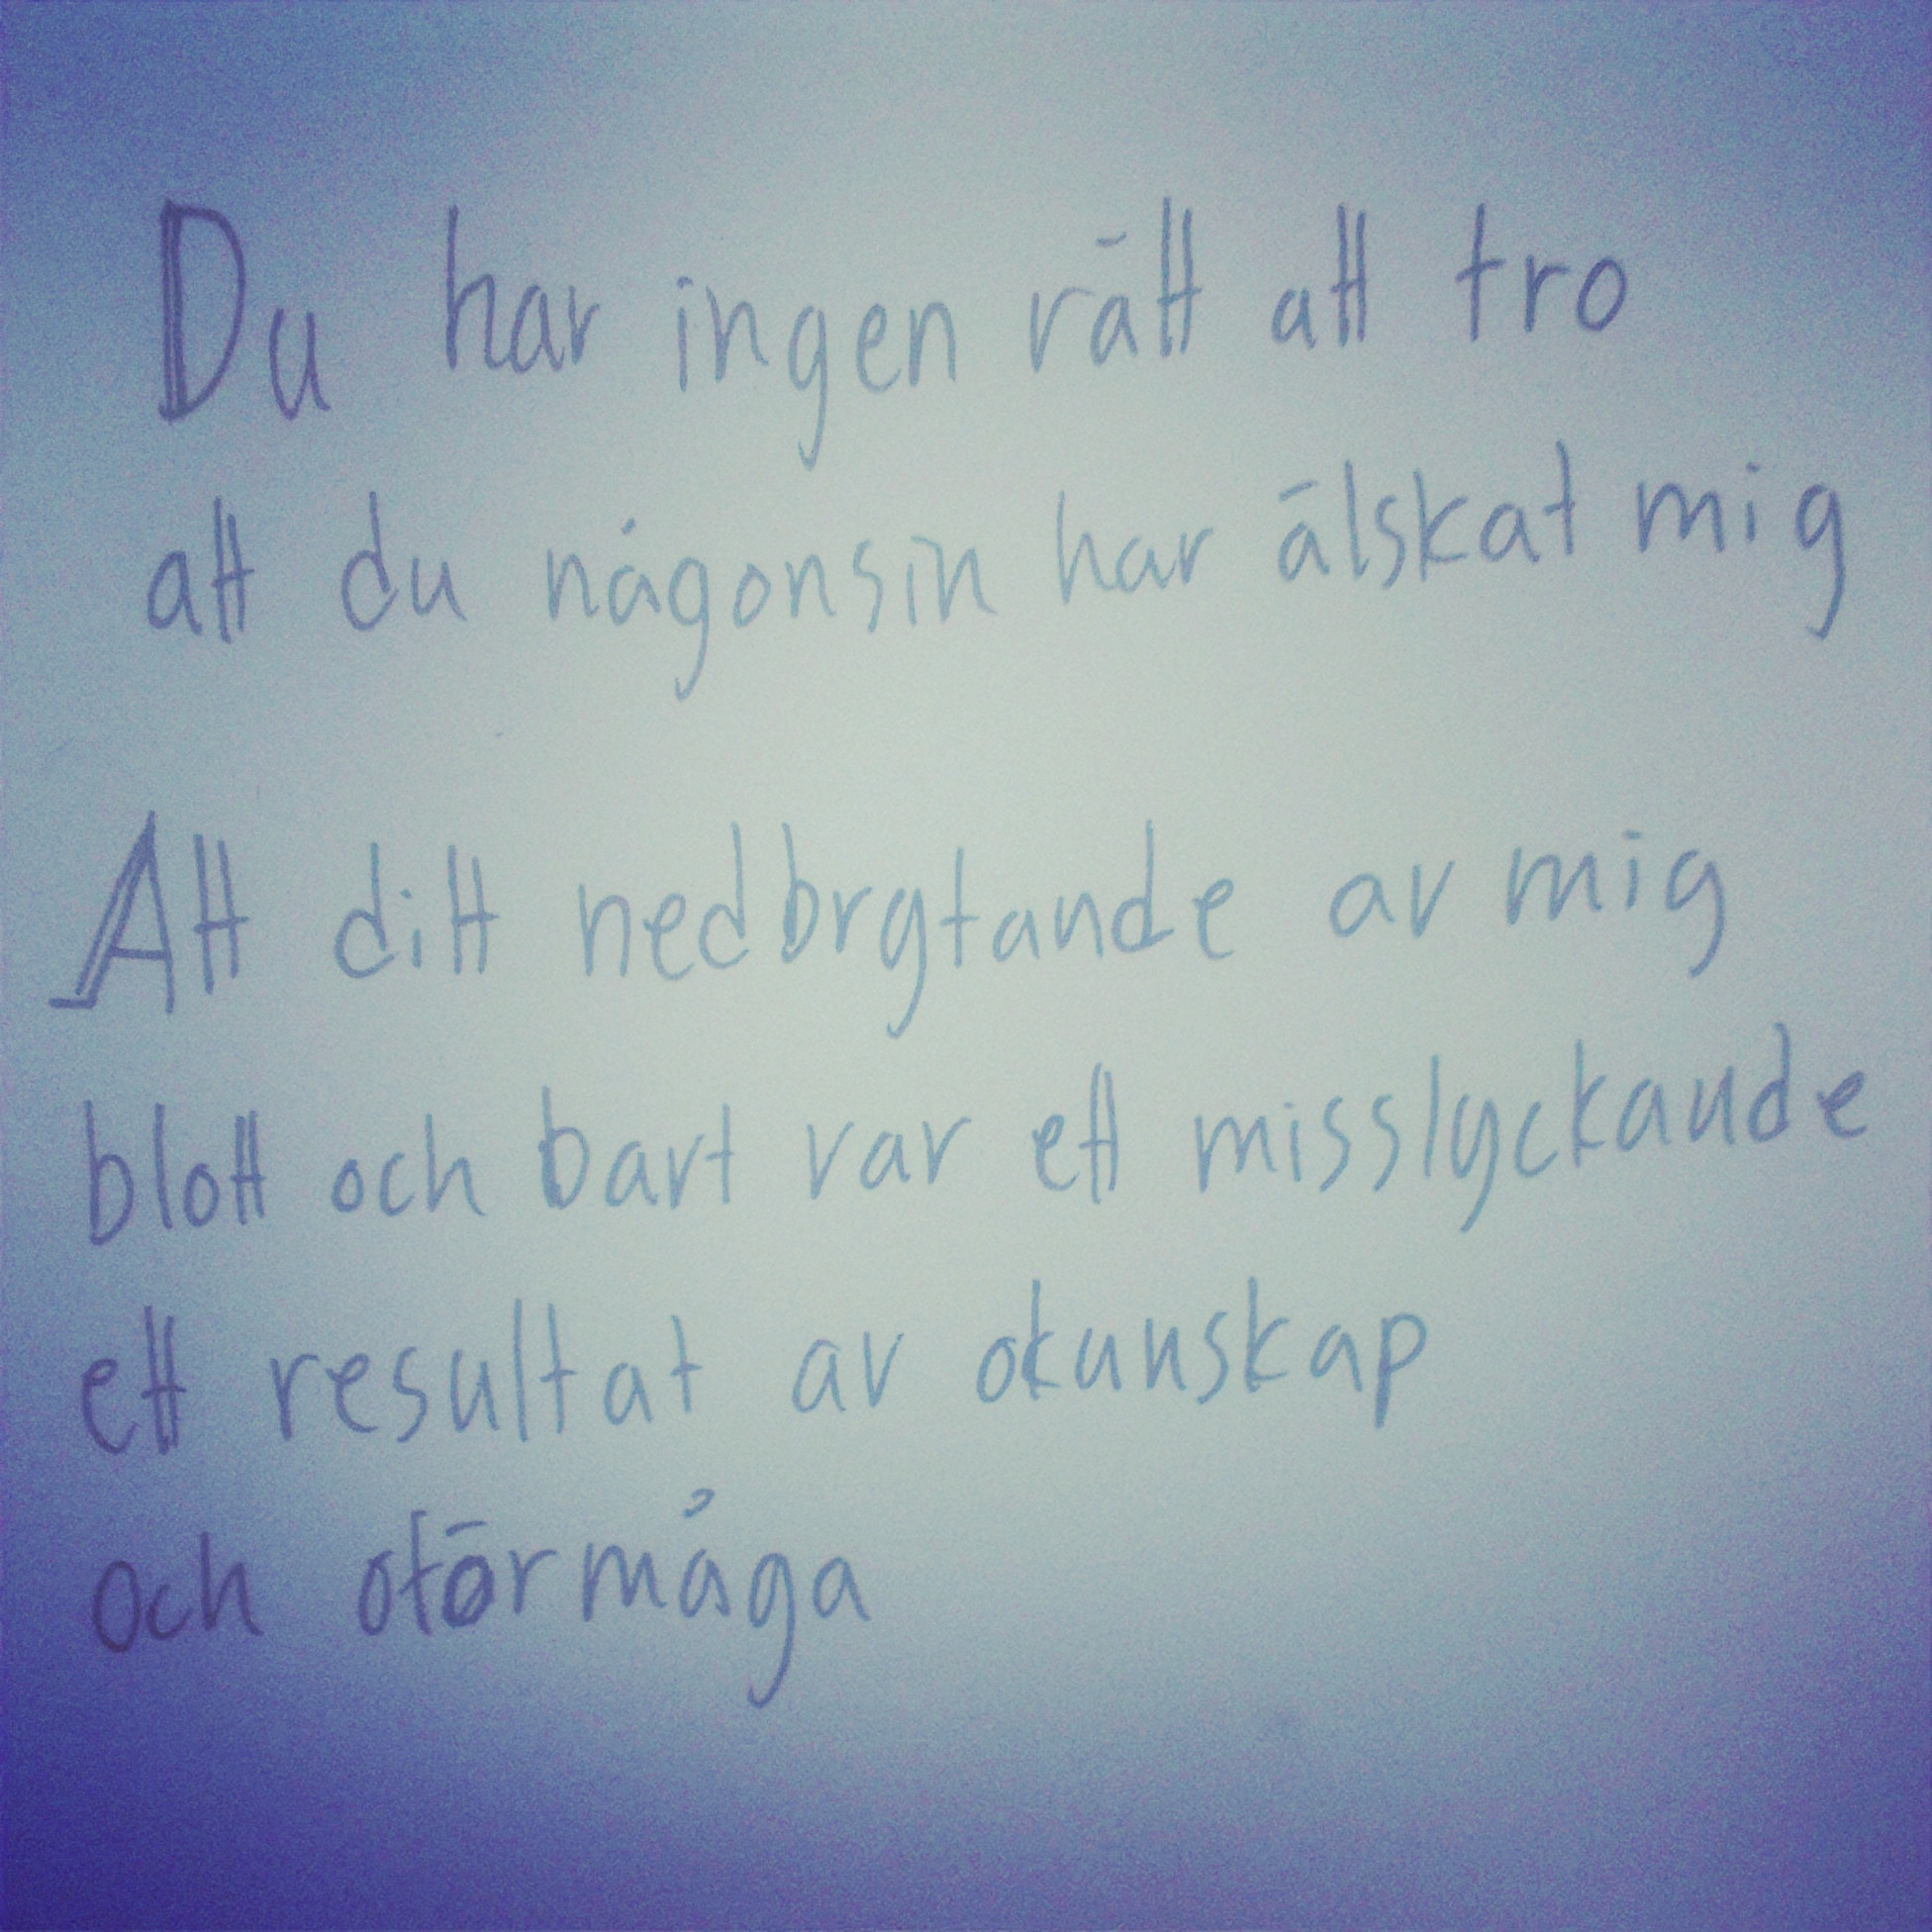 Du har ingen rätt att tro
att du någonsin har älskat mig
Att ditt nedbrytande av mig
blott och bart var ett misslyckande
ett resultat av okunskap
och oförmåga